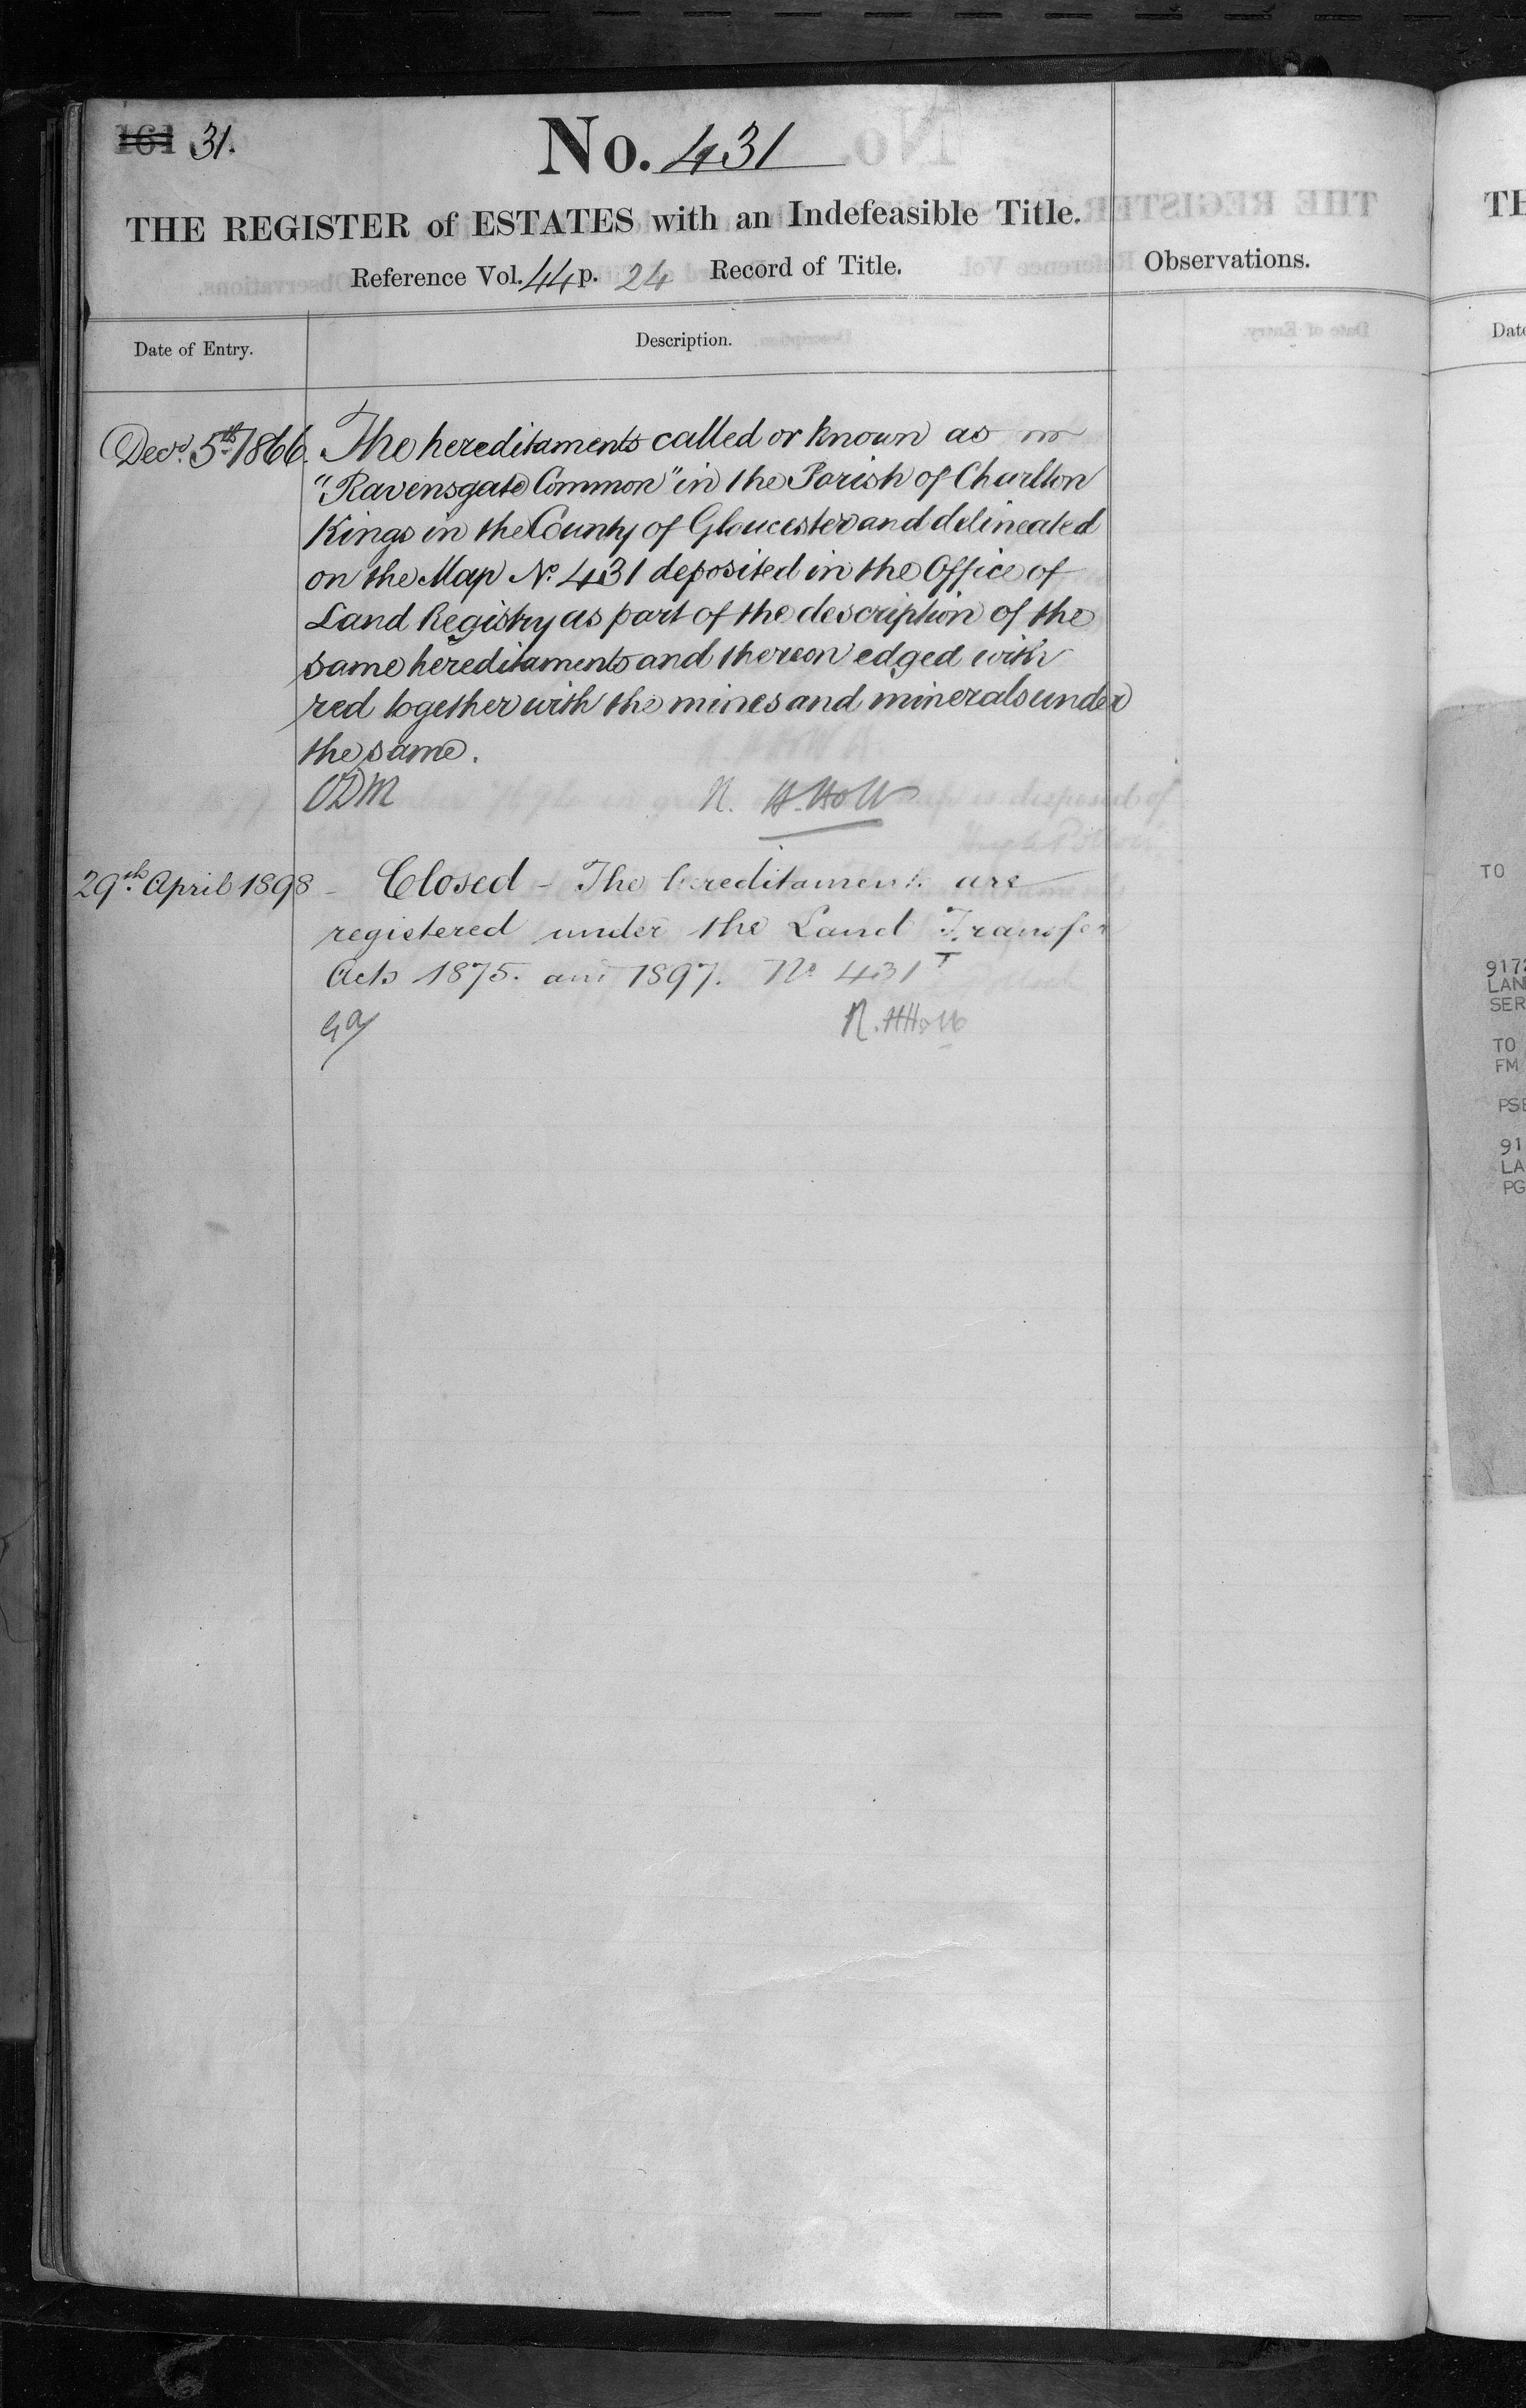 161 31.
No. 431
THE REGISTER of ESTATES with an Indefeasible Title.
Reference Vol. 44 p. 24 Record of Title.
Observations.
Date of Entry.
Description.
Decr. 5th 1866. The hereditaments called or known as
"Ravensgate Common" in the Parish of Charlton
Kings in the County of Gloucester and delineated
on the Map No. 431 deposited in the Office of
Land Registry as part of the description of the
same hereditaments and thereon edged with
red together with the mines and minerals under
the same.
R. H. Holt
29th April 1898 - Closed - The hereditaments are
registered under the Land Transfer
Acts 1875. and 1897. No 431 T
R. H Holt
TH
Date
TO
9172
LAN
SER
TO
FM
PSE
91
LA
PG